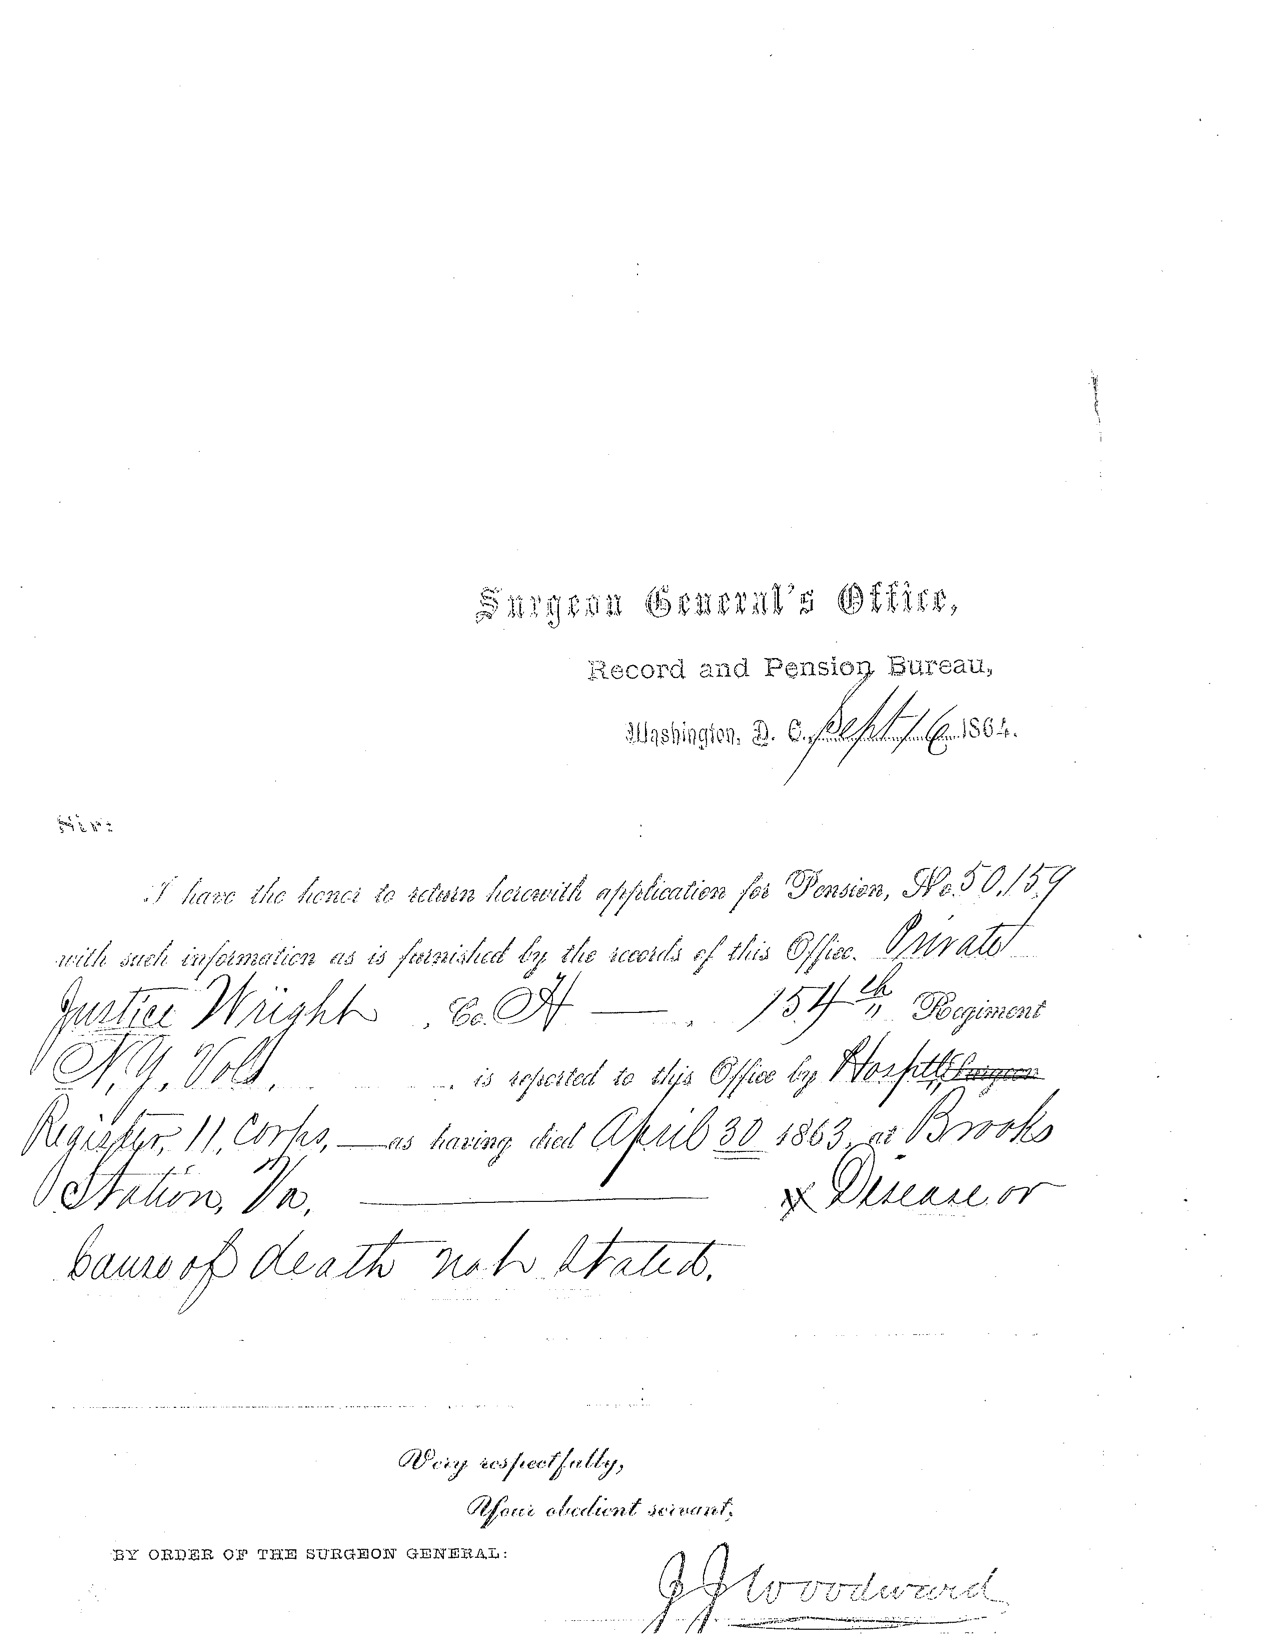 Surgeon General's Office,
Record and Pension Bureau,
Washington, D. C., Sept 16 1864.
Sir:
I have the honor to return herewith application for Pension, No. 50,159
with such information as is furnished by the records of this Office. Private
Justice Wright, Co. H — , 154th Regiment
N.Y. Vols. is reported to this Office by Hospttl Surgeon
Register, 11, Corps, — as having died April 30 1863, at Brooks
Station, Va. — x Disease or
Cause of death not stated.
Very respectfully,
Your obedient servant,
BY ORDER OF THE SURGEON GENERAL:
J J Woodward